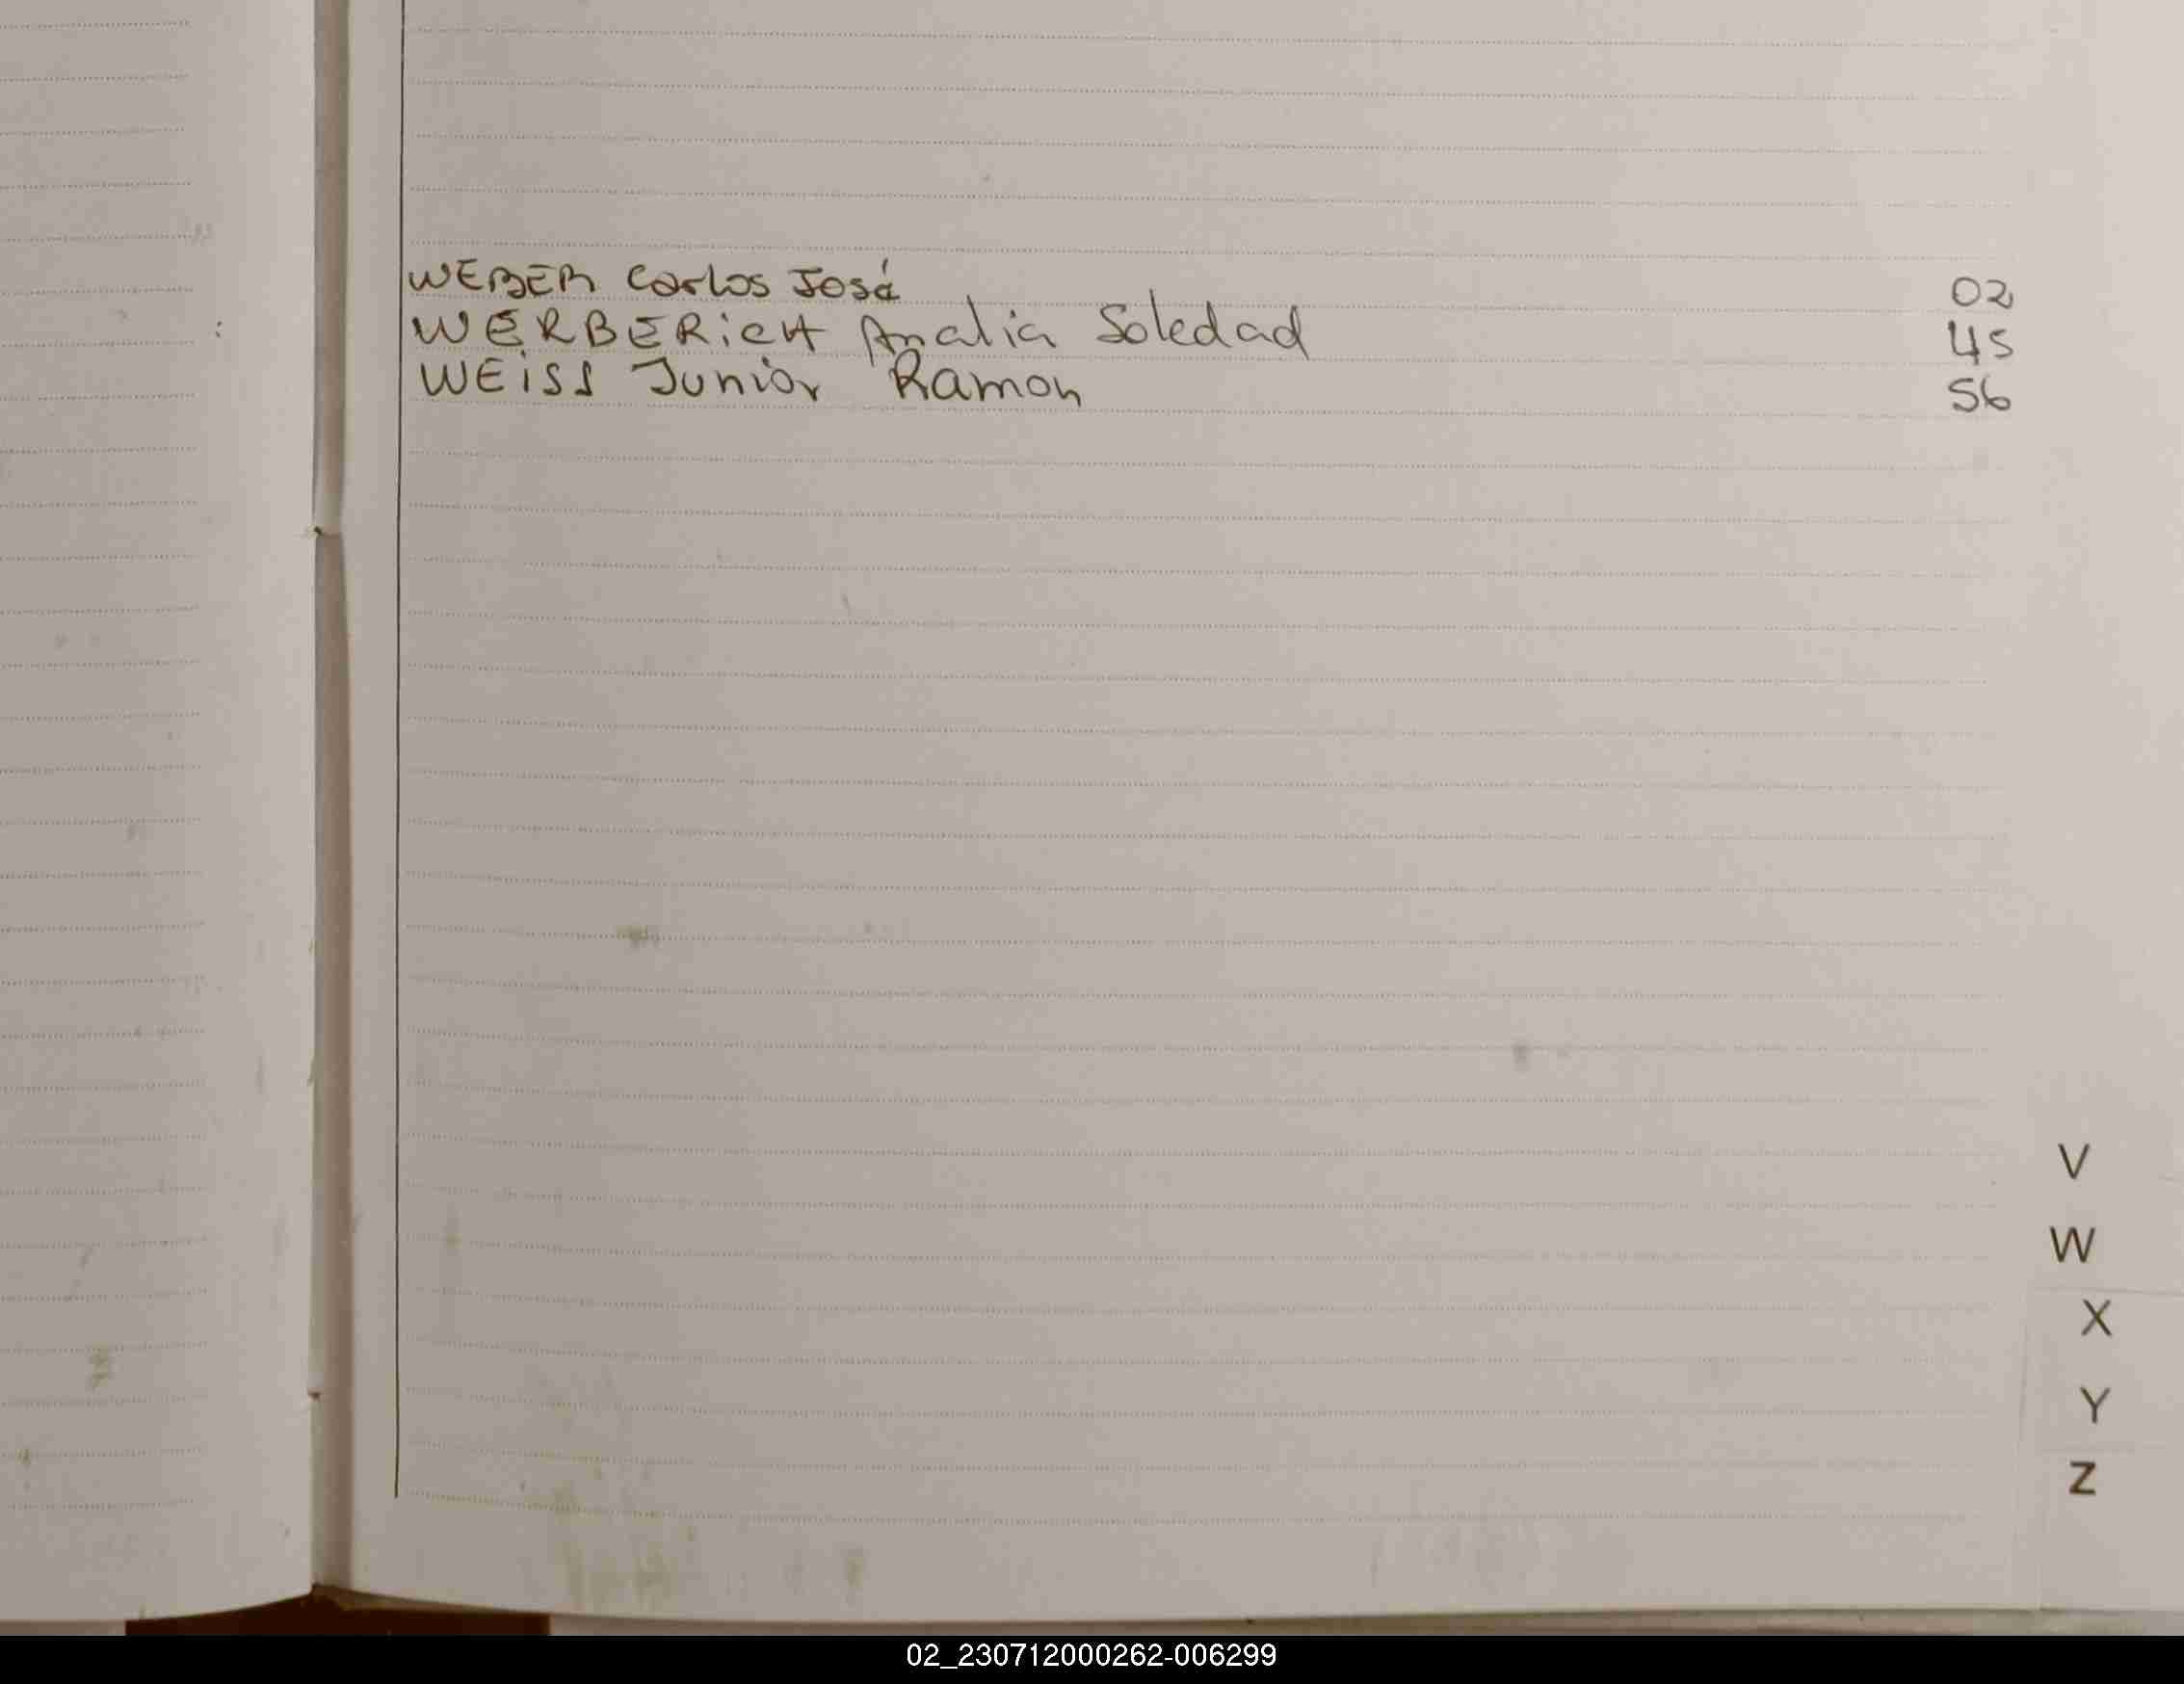 WEBER Carlos José 02
WERBERicH Analia Soledad 45
WEiSS Junior Ramon 56
V
W
X
Y
Z
02_230712000262-006299